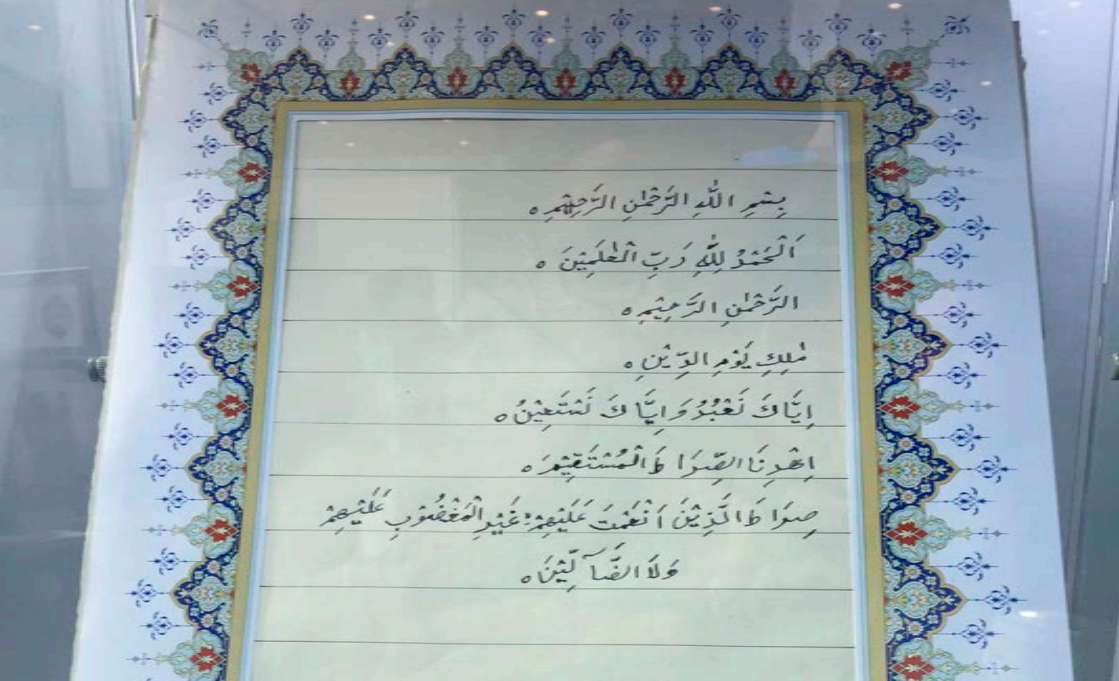 بِسْمِ اللّٰهِ الرَّحْمٰنِ الرَّحِيْمِ ہ
اَلْحَمْدُ لِلّٰهِ رَبِّ الْعٰلَمِيْنَ ہ
الرَّحْمٰنِ الرَّحِيْمِ ہ
مٰلِكِ يَوْمِ الدِّيْنِ ہ
اِيَّاكَ نَعْبُدُ وَاِيَّاكَ نَسْتَعِيْنُ ہ
اِهْدِنَا الصِّرَاطَ الْمُسْتَقِيْمَ ہ
صِرَاطَ الَّذِيْنَ اَنْعَمْتَ عَلَيْهِمْ غَيْرِ الْمَغْضُوْبِ عَلَيْهِمْ
وَلَا الضَّآلِّيْنَ ہ